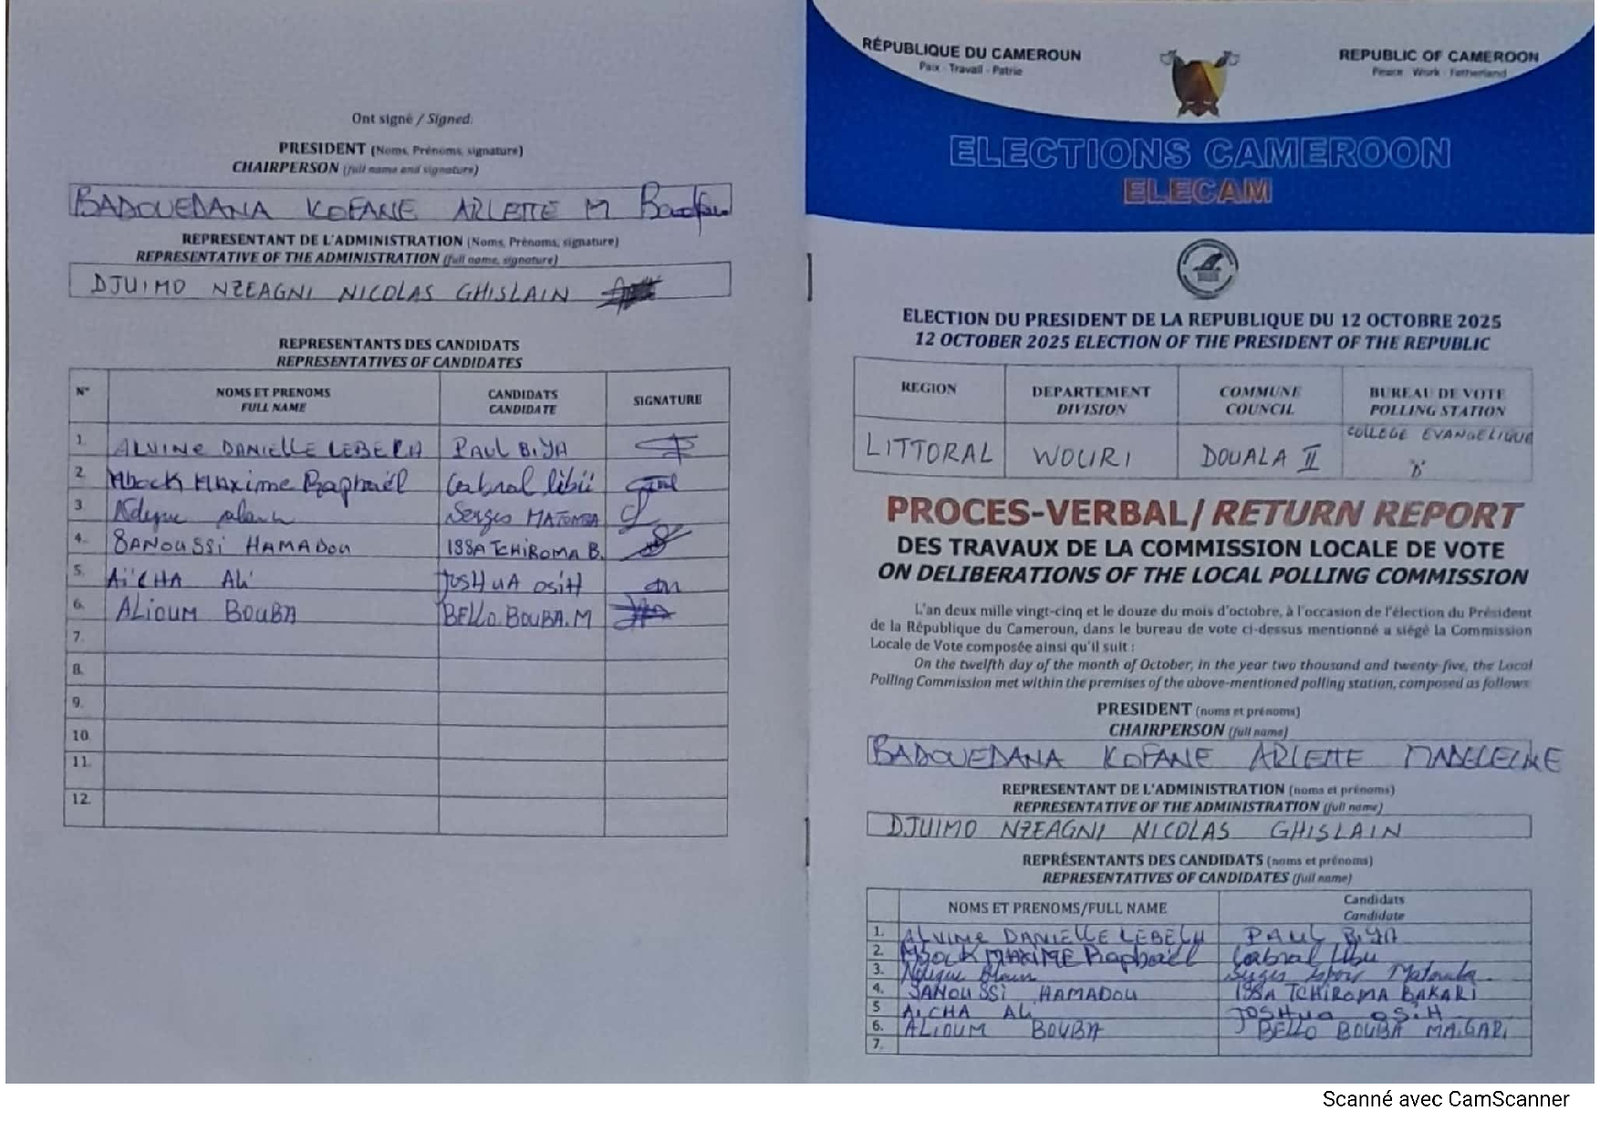 Ont signé / Signed:
PRESIDENT (Noms, Prénoms, signature)
CHAIRPERSON (full name and signature)
BADOUEDANA KOFANE ARLETTE M
REPRESENTANT DE L'ADMINISTRATION (Noms, Prénoms, signature)
REPRESENTATIVE OF THE ADMINISTRATION (full name, signature)
DJUIMO NZEAGNI NICOLAS GHISLAIN
REPRESENTANTS DES CANDIDATS
REPRESENTATIVES OF CANDIDATES
N° NOMS ET PRENOMS CANDIDATS SIGNATURE
FULL NAME CANDIDATE
1. ALVINE DANIELLE LEBECH PAUL BIYA
2. Mbock Maxime Raphaël Cabral libii
3. Serges MATOMBA
4. SANOUSSI HAMADOU ISSA TCHIROMA B.
5. AÏCHA Ali JOSHUA OSIH
6. ALIOUM BOUBA BELLO BOUBA.M
7.
8.
9.
10.
11.
12.
RÉPUBLIQUE DU CAMEROUN
Paix - Travail - Patrie
REPUBLIC OF CAMEROON
Peace - Work - Fatherland
ELECTIONS CAMEROON
ELECAM
ELECTION DU PRESIDENT DE LA REPUBLIQUE DU 12 OCTOBRE 2025
12 OCTOBER 2025 ELECTION OF THE PRESIDENT OF THE REPUBLIC
REGION DEPARTEMENT COMMUNE BUREAU DE VOTE
DIVISION COUNCIL POLLING STATION
LITTORAL WOURI DOUALA II COLLEGE EVANGELIQUE
PROCES-VERBAL/ RETURN REPORT
DES TRAVAUX DE LA COMMISSION LOCALE DE VOTE
ON DELIBERATIONS OF THE LOCAL POLLING COMMISSION
L'an deux mille vingt-cinq et le douze du mois d'octobre, à l'occasion de l'élection du Président
de la République du Cameroun, dans le bureau de vote ci-dessus mentionné a siégé la Commission
Locale de Vote composée ainsi qu'il suit :
On the twelfth day of the month of October, in the year two thousand and twenty-five, the Local
Polling Commission met within the premises of the above-mentioned polling station, composed as follows
PRESIDENT (noms et prénoms)
CHAIRPERSON (full name)
BADOUEDANA KOFANE ARLETTE MADELEINE
REPRESENTANT DE L'ADMINISTRATION (noms et prénoms)
REPRESENTATIVE OF THE ADMINISTRATION (full name)
DJUIMO NZEAGNI NICOLAS GHISLAIN
REPRÉSENTANTS DES CANDIDATS (noms et prénoms)
REPRESENTATIVES OF CANDIDATES (full name)
NOMS ET PRENOMS/FULL NAME Candidats
Candidate
1. ALVINE DANIELLE LEBECH PAUL BIYA
2. Mbock MAXIME Raphaël Cabral libii
3. Serges Matomba
4. SANOUSSI HAMADOU ISSA TCHIROMA BAKARI
5 AICHA Ali JOSHUA OSIH
6. ALIOUM BOUBA BELLO BOUBA MAIGARI
7.
Scanné avec CamScanner